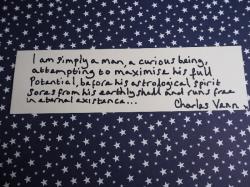 I am simply a man, a curious being,
attempting to maximise his full
Potential, before his astrological spirit
sores from his earthly shell and runs free
in eternal existance...
Charles Venn